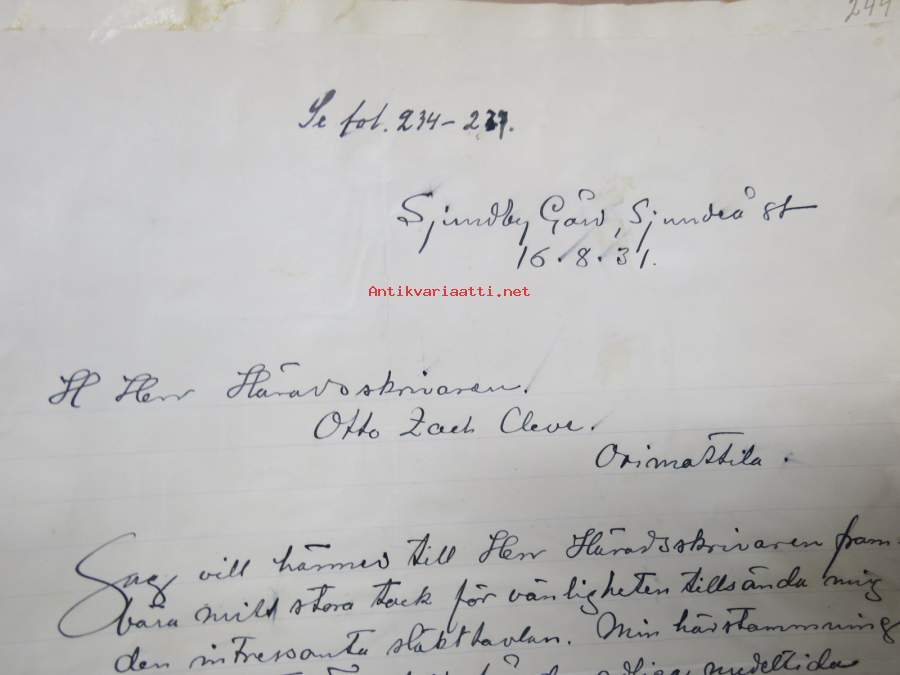 244
Se fol. 234-237.
Sjundby Gård, Sjundeå st
16.8.31.
Antikvariaatti.net
H Herr Häradsskrivaren.
Otto Zach Cleve.
Orimattila.
Jag vill härmed till Herr Häradsskrivaren fram-
bära mitt stora tack för vänligheten tillsända mig
den intressanta släkttavlan. Min härstamning
medeltida